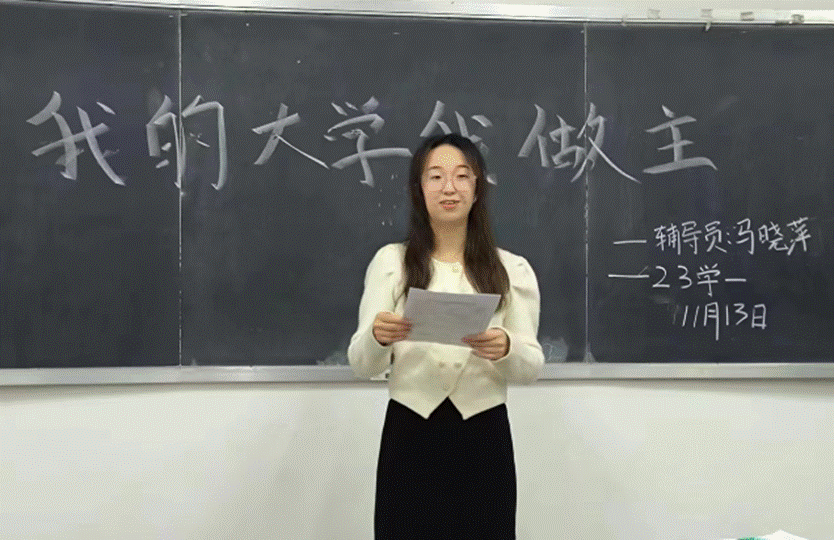 我的大学我做主
—辅导员:冯晓萍
—23学一
11月13日